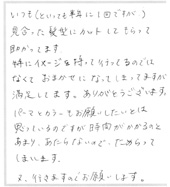 いつも(といっても半年に1回ですが)
見合った髪型にカットしてもらって
助かってます
特にイメージを持って行ってるのでは
なくて おまかせになってしまってますが
満足してます。ありがとうございます。
パーマとカラーもお願いしたいとは
思っているのですが時間がかかるのと
あまり、あたらないので、ためらって
しまいます。
又、行きますのでお願いします。